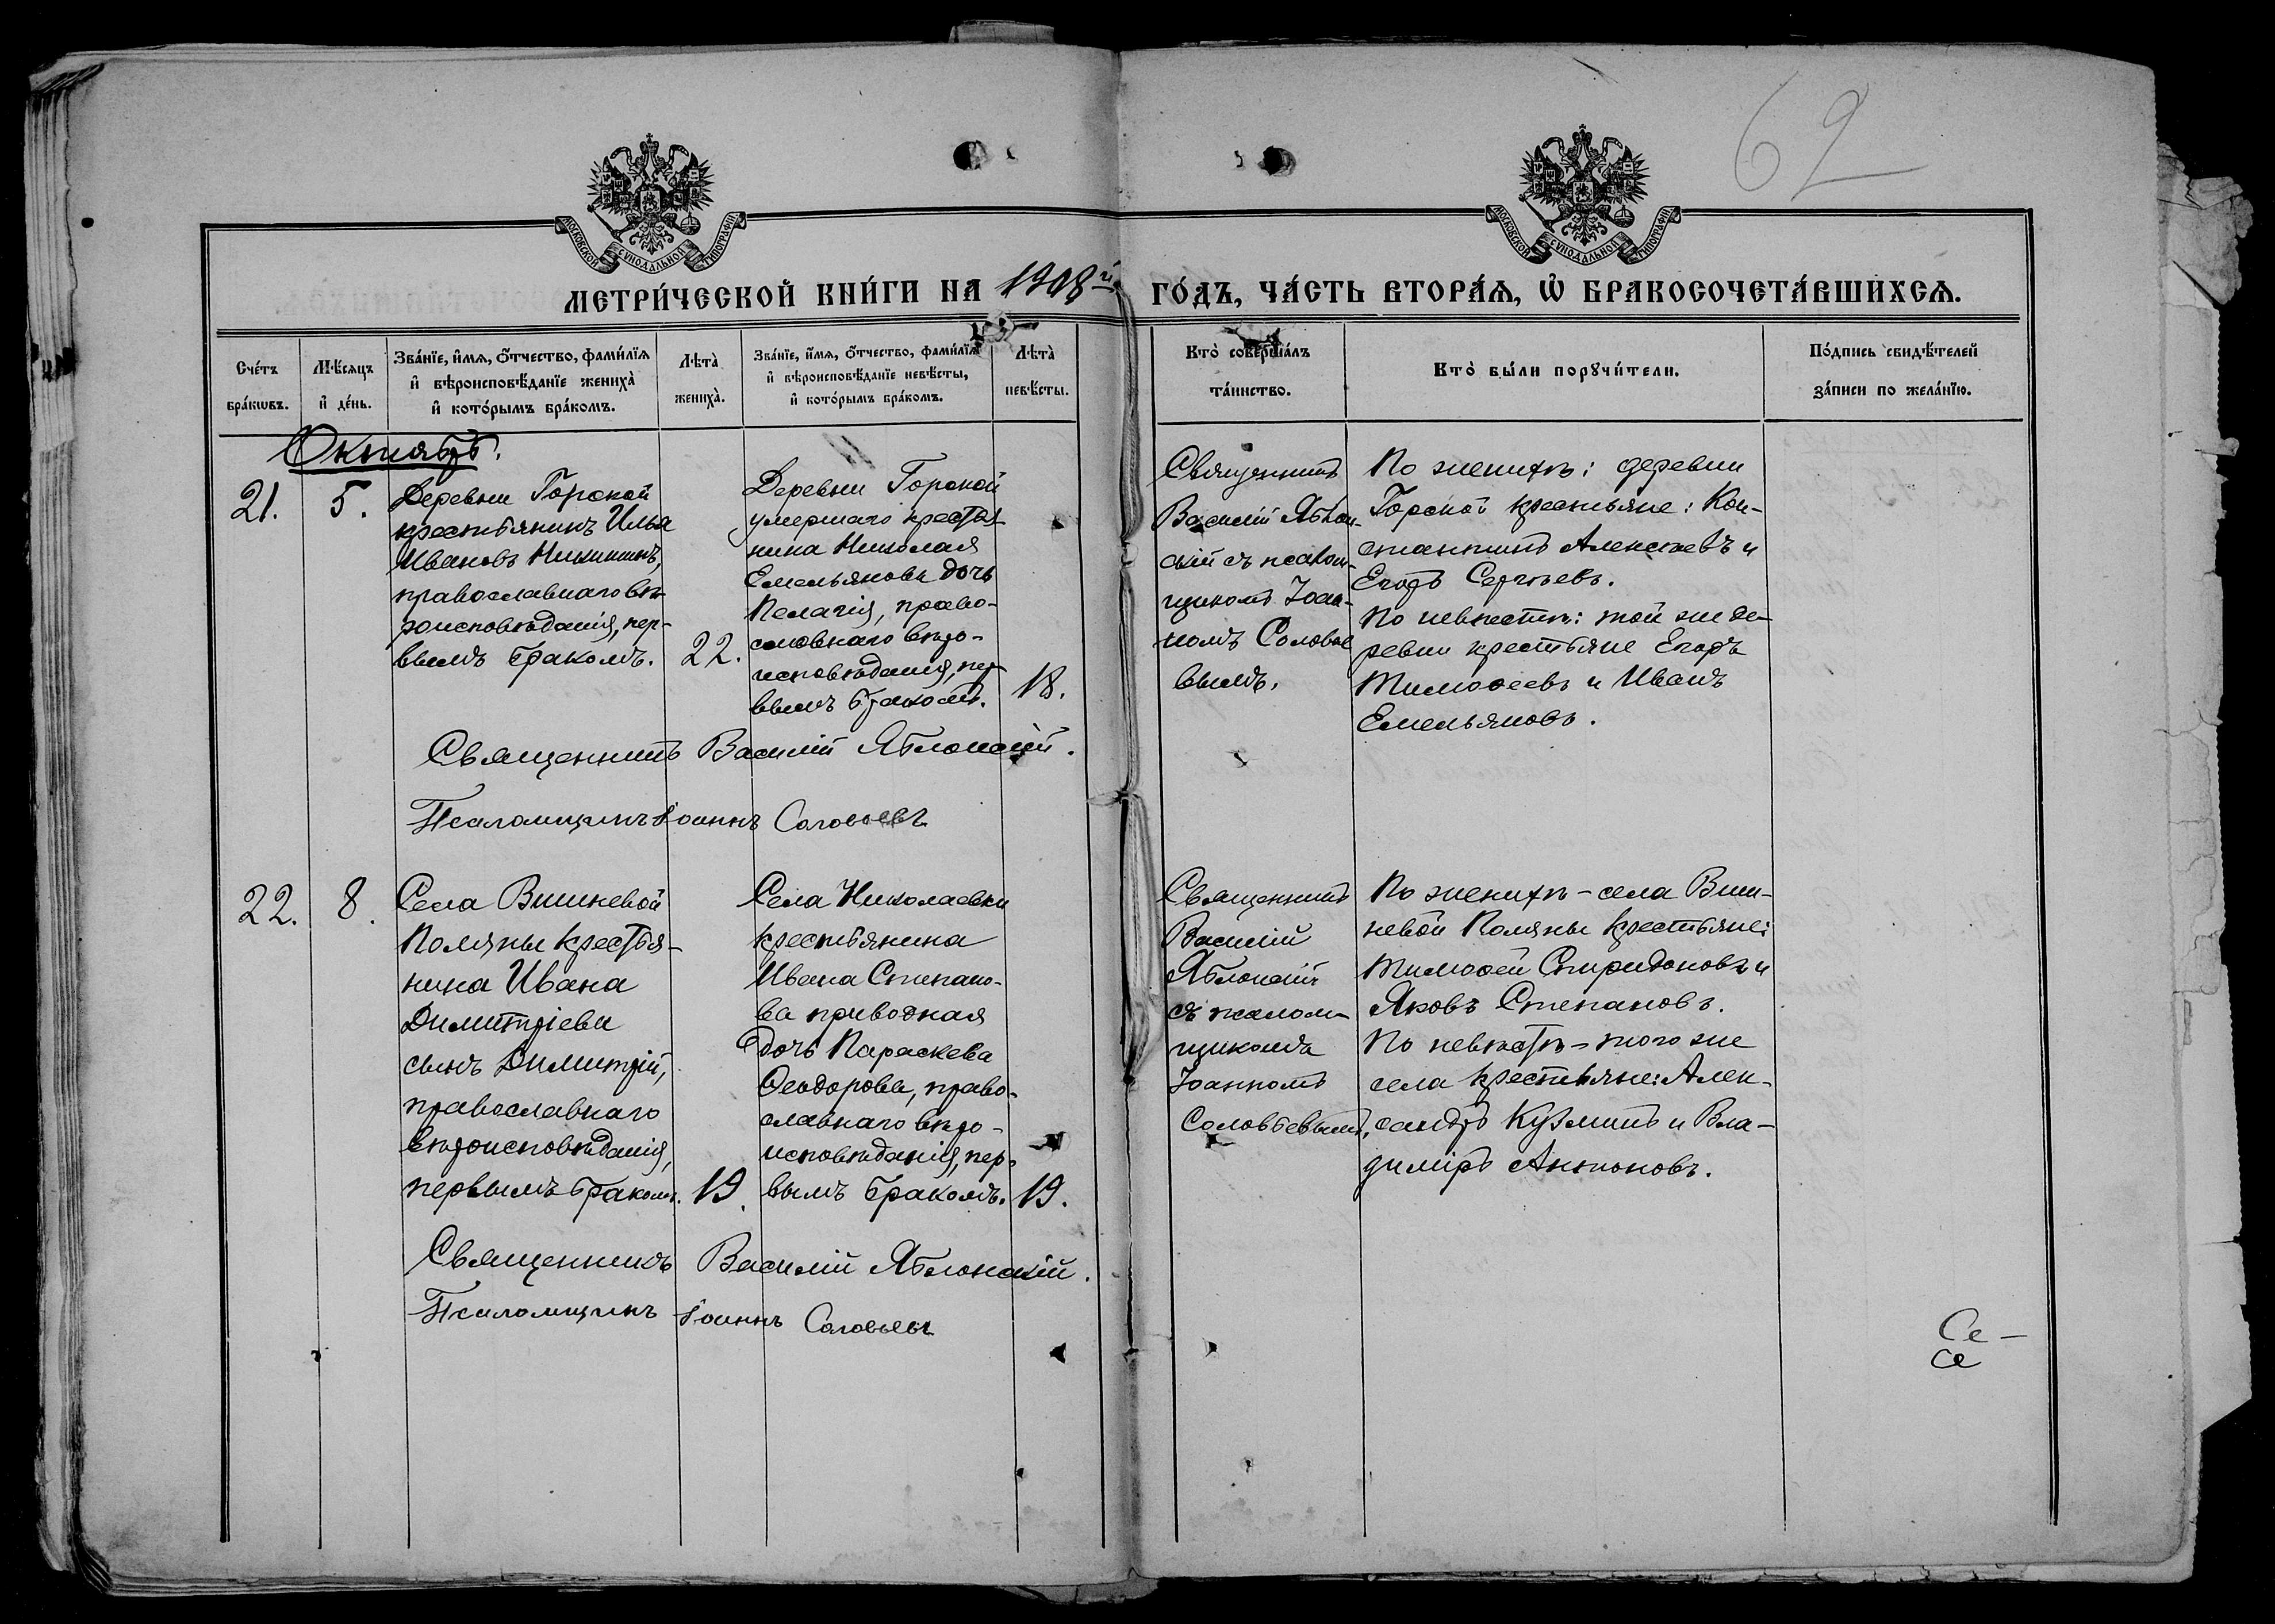 62
МОСКОВСКОЙ СѴНОДАЛЬНОЙ ТИПОГРАФІИ
МОСКОВСКОЙ СѴНОДАЛЬНОЙ ТИПОГРАФІИ
МЕТРИ́ЧЕСКОЙ КНИ́ГИ НА 1908й ГО́ДЪ, ЧА́СТЬ ВТОРА́Ѧ, Ѡ҆ БРАКОСОЧЕТА́ВШИХСѦ.
Сче́тъ
бра́кѡвъ.
Мѣ́сѧцъ
и҆ де́нь.
Зва́нїе, и҆́мѧ, ѻ҆́тчество, фами́лїѧ
и҆ вѣроисповѣ́данїе жениха̀
и҆ кото́рымъ бра́комъ.
Лѣта̀
жениха̀.
Зва́нїе, и҆́мѧ, ѻ҆́тчество, фами́лїѧ
и҆ вѣроисповѣ́данїе невѣ́сты,
и҆ кото́рымъ бра́комъ.
Лѣта̀
невѣ́сты.
Кто̀ соверша́лъ
та́инство.
Кто̀ бы́ли порꙋчи́тели.
По́дпись свидѣ́телей
за́писи по жела́нїю.
Октябрь.
21.
5.
Деревни Горской
крестьянинъ Илья
Ивановъ Никишинъ,
православнаго вѣ-
роисповѣданія, пер-
вымъ бракомъ.
22.
Деревни Горской
умершаго крестья-
нина Николая
Емельянова дочь
Пелагія, право-
славнаго вѣро-
исповѣданія, пер-
вымъ бракомъ.
18.
Священникъ
Василій Яблон-
скій съ псалом-
щикомъ Іоан-
номъ Соловье
вымъ.
По женихѣ: деревни
Горской крестьяне: Кон-
стантинъ Алексѣевъ и
Егоръ Сергѣевъ.
По невѣстѣ: той же де-
ревни крестьяне Егоръ
Тимоѳеевъ и Иванъ
Емельяновъ.
Священникъ Василій Яблонскій.
Псаломщикъ Іоаннъ Соловьевъ
22.
8.
Села Вишневой
Поляны крестья-
нина Ивана
Димитріева
сынъ Димитрій,
православнаго
вѣроисповѣданія,
первымъ бракомъ.
19.
Села Николаевки
крестьянина
Ивана Степано-
ва приводная
дочь Параскева
Ѳеодорова, право-
славнаго вѣро-
исповѣданія, пер-
вымъ бракомъ.
19.
Священникъ
Василій
Яблонскій
съ псалом-
щикомъ
Іоанномъ
Соловьевымъ.
По женихѣ - села Виш-
невой Поляны крестьяне:
Тимоѳей Спиридоновъ и
Яковъ Степановъ.
По невѣстѣ - того же
села крестьяне: Алек-
сандръ Кузминъ и Вла-
диміръ Антоновъ.
Священникъ Василій Яблонскій.
Псаломщикъ Іоаннъ Соловьевъ
Се-
Се